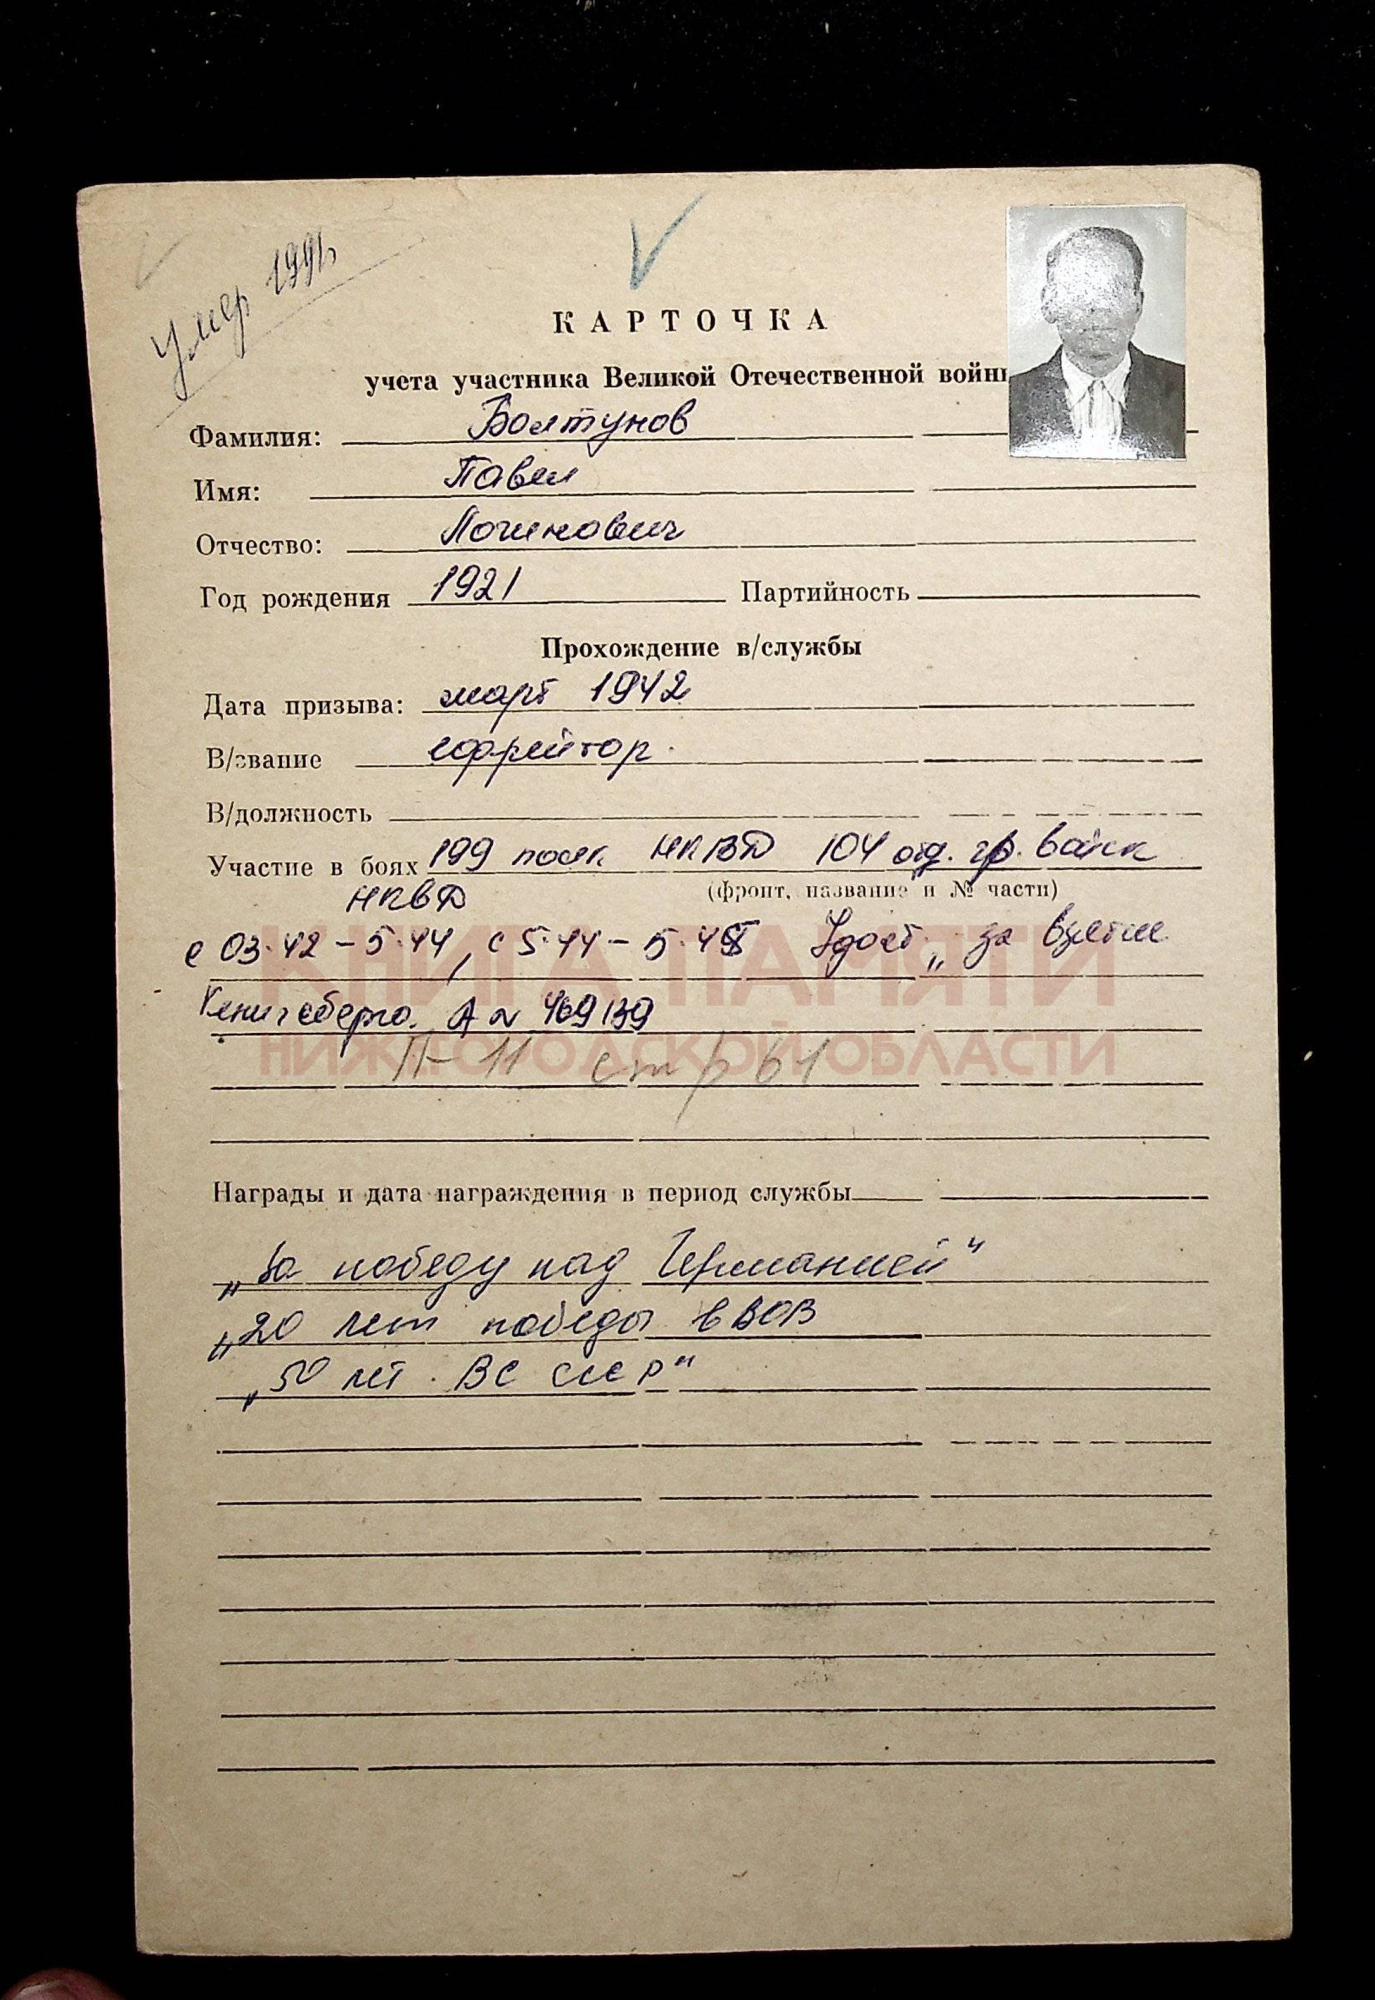 Умер 1991г
КАРТОЧКА
учета участника Великой Отечественной войны
Фамилия: Болтунов
Имя: Павел
Отчество: Логинович
Год рождения 1921 Партийность
Прохождение в/службы
Дата призыва: март 1942
В/звание ефрейтор.
В/должность
Участие в боях 199 полк НКВД 104 отд. гр. войск
(фронт, название и № части)
НКВД
с 03.42 – 5.44, с 5.44 – 5.45 Удост „за взятие
Кенигсберга. А № 469139
КНИГА ПАМЯТИ
НИЖЕГОРОДСКОЙ ОБЛАСТИ
П-11 стр 61
Награды и дата награждения в период службы
„За победу над Германией“
„20 лет победы в ВОВ
„50 лет ВС СССР“